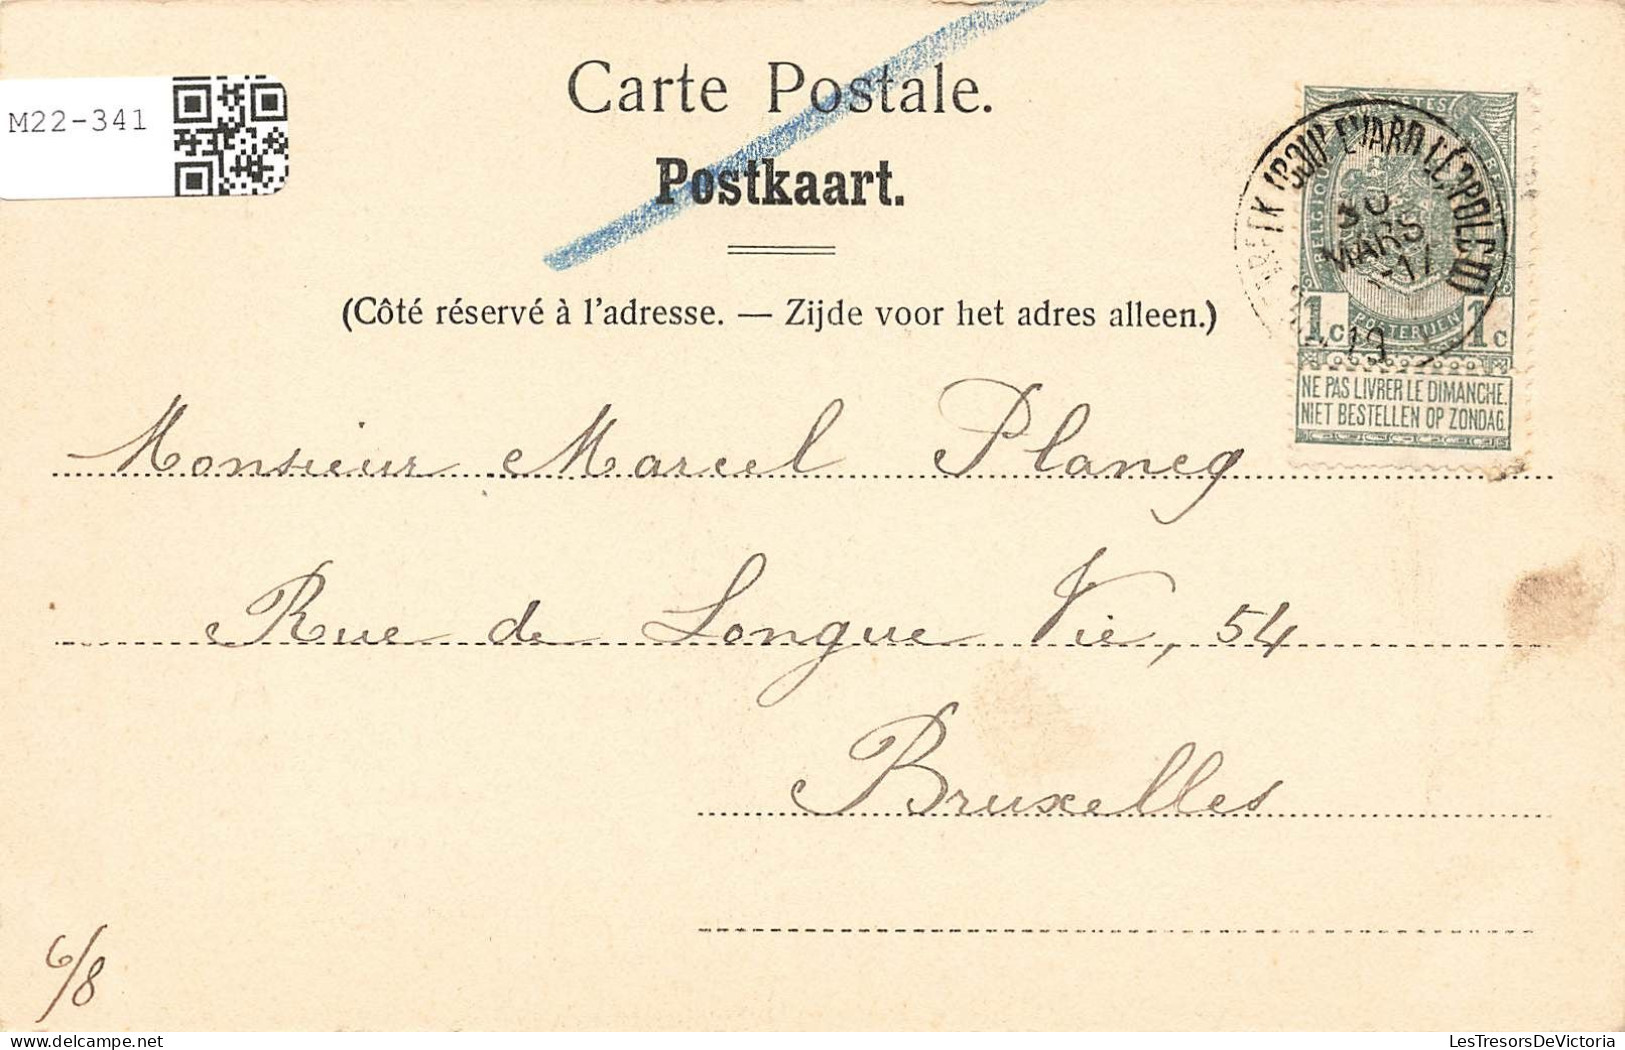 Carte Postale.
M22-341
Postkaart.
(Côté réservé à l'adresse. — Zijde voor het adres alleen.)
BELGIQUE
30
MARS
1c POSTERIJEN 1c
NE PAS LIVRER LE DIMANCHE.
NIET BESTELLEN OP ZONDAG.
Monsieur Marcel Plancq
Rue de Longue Vie, 54
Bruxelles
6/8
LesTresorsDeVictoria